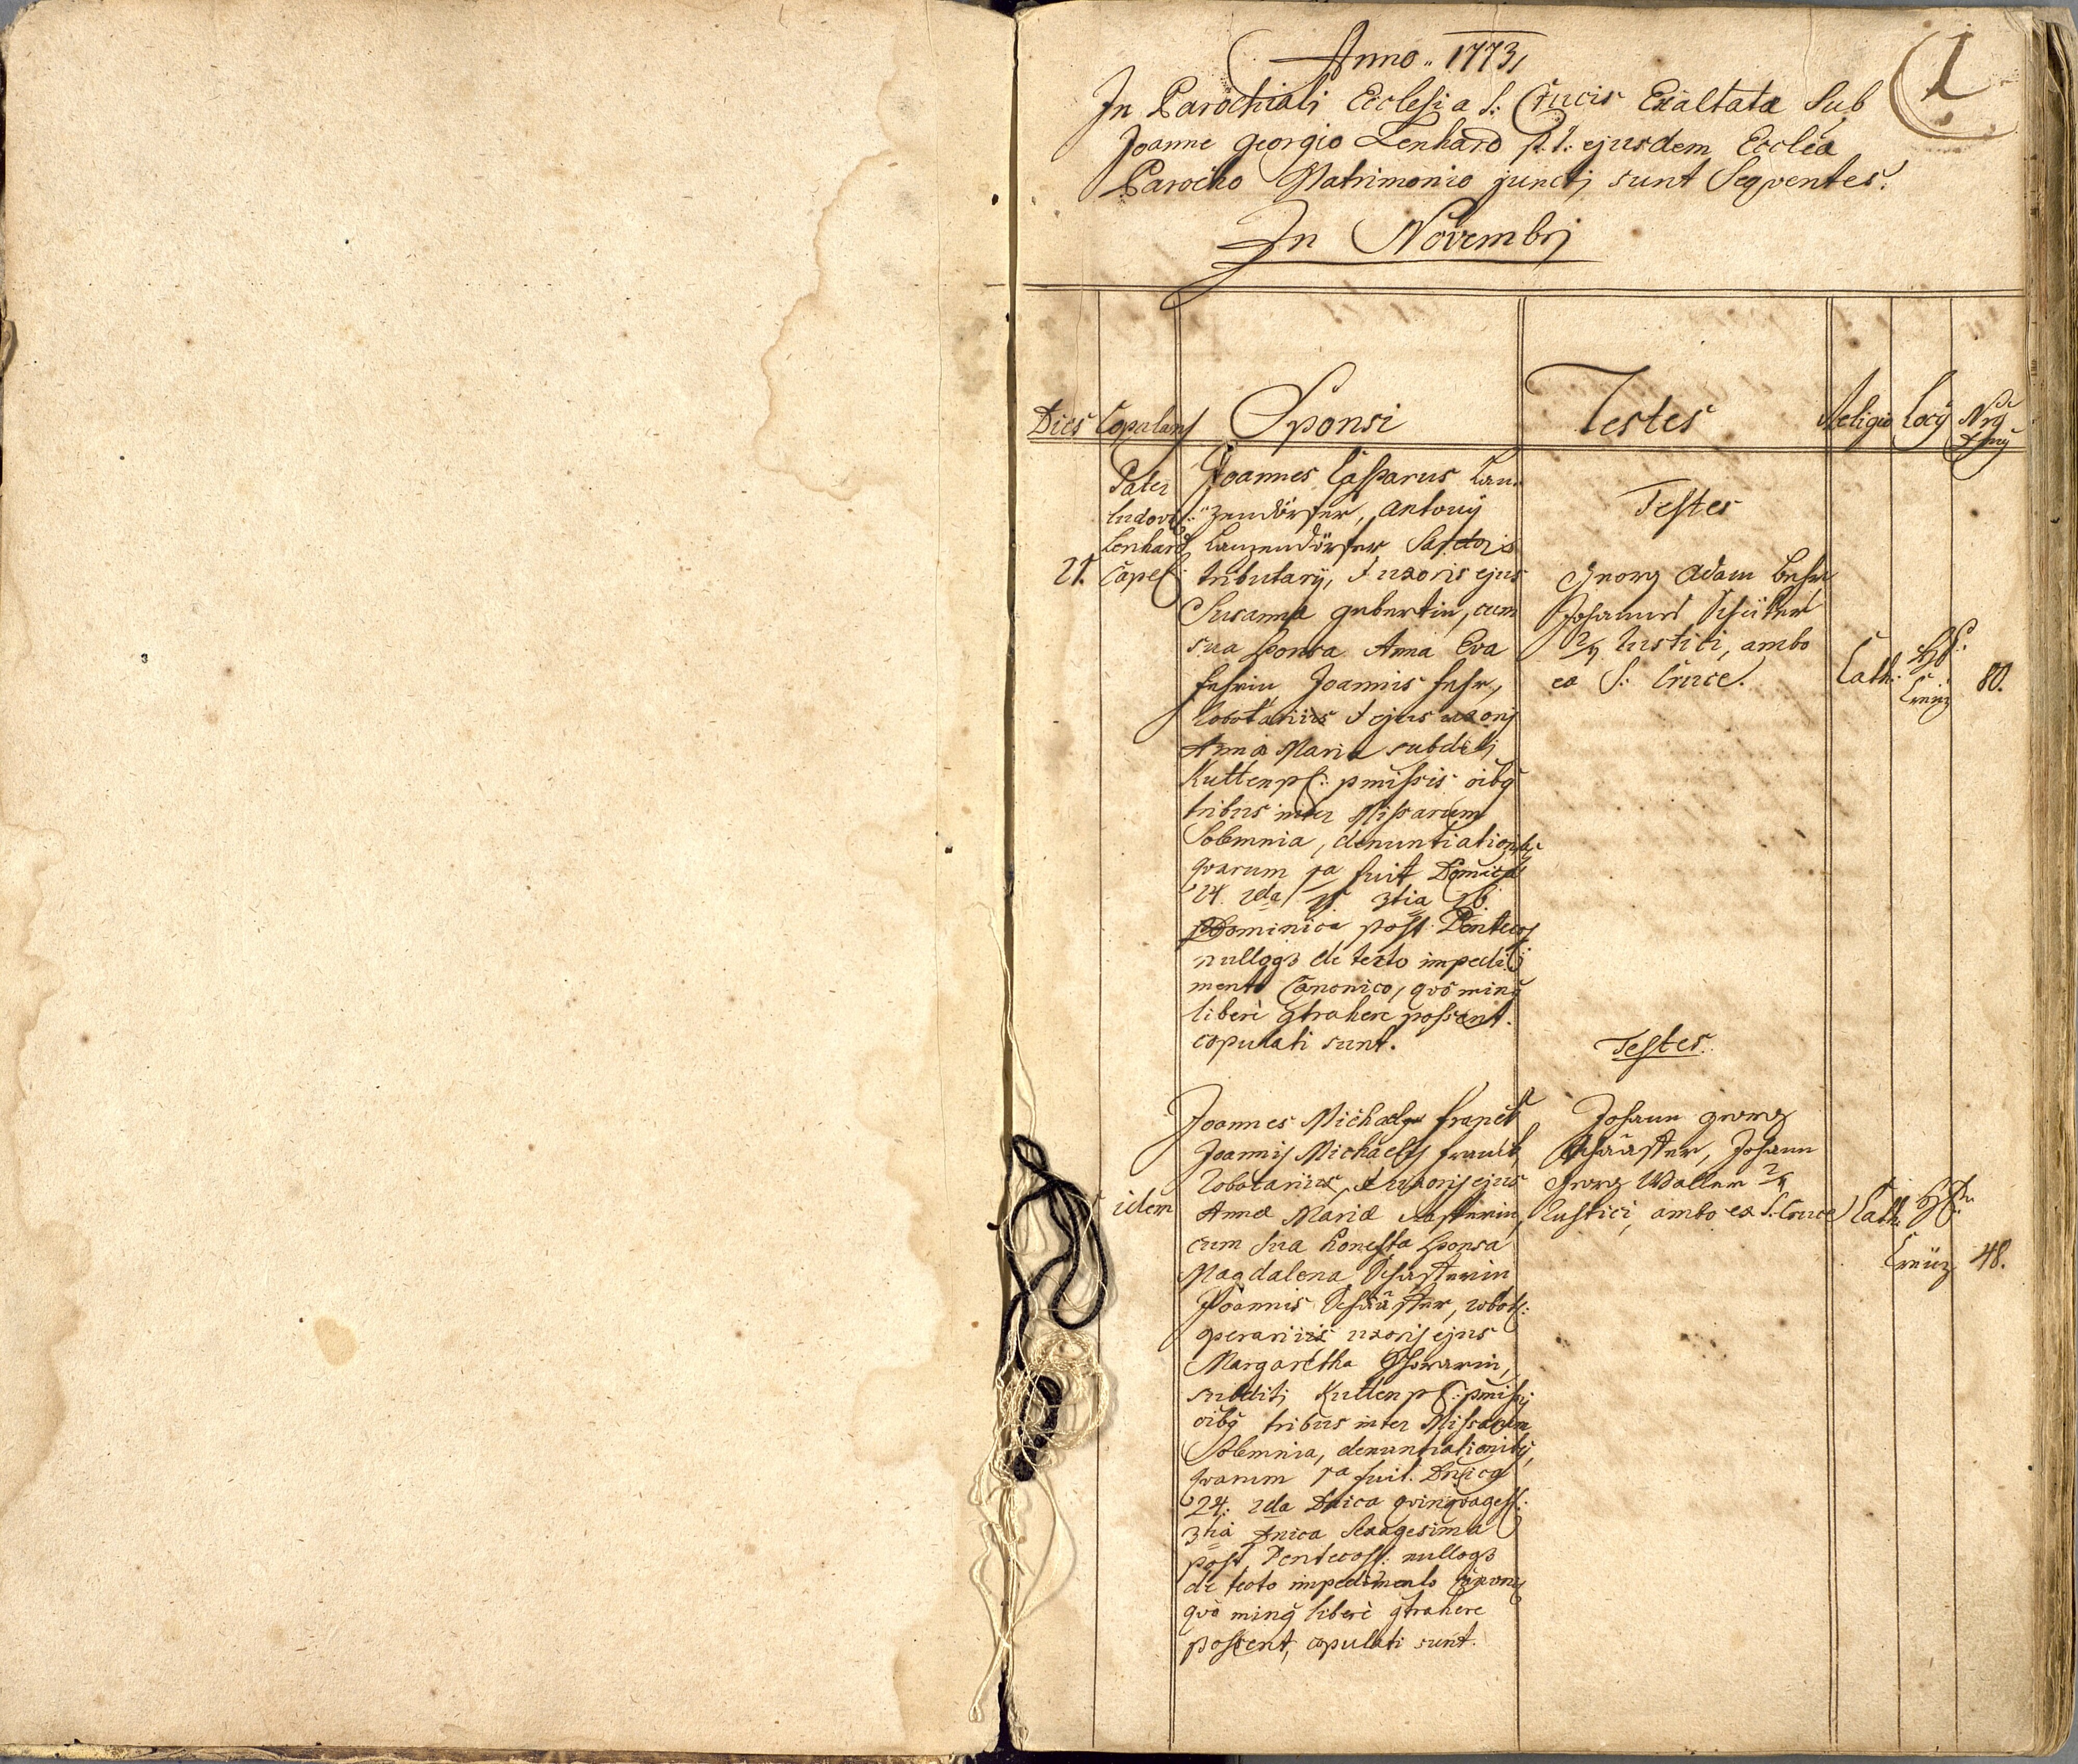 Anno 1773
1
In Parochiali Ecclesia S: Crucis Exaltatæ Sub
Joanne Georgio Lenhard p.t: ejusdem Ecclæ
Parocho Matrimonio juncti sunt Seqventes.
In Novembrj
Dies Copulans Sponsi Testes Religio Locy Nrg Dmg
Pater
Ludov:
Lenhard
21. Capel:
Joannes Casparus Lau
zendörfer, Antonÿ
Lauzendörfer Sartoris
tributarÿ, & uxoris ejus
Susanna gubertin, cum
sua sponsa Anna Eva
fehrin Joannis fehr,
Robotariis & ejus uxorj
Anna Maria subditi
Kuttenpl: pmissis oibg
tribus inter Missarum
Solemnia, denuntiationibg
qvarum 1a fuit Dominica
24. 2da 25. 3tia 26.
Dominica post Pentecos
nullogz detecto impedi
mento Canonico, qvo ming
liberè gtrahere possent.
copulati sunt.
Testes
Georg Adam
Johannes
2/4 Rustici, ambo
ex S: Cruce.
Cath. Hl: Creüz 80.
idem
Joannes Michael
Joannis Michaelis
Robotariis, & uxoris ejus
Anna Maria
cum sua honesta sponsa
Magdalena Schasterin
Joannis Schaaster, robot:
operariis uxoris ejus
Margaretha
subditi Kuttenpl: pmissis
oibg tribus inter Missarum
Solemnia, denuntiationibg,
qvarum 1a fuit Dnica
24. 2da Dnica qvinqvages:
3tia Dnica Sexagesima
post Pentecost: nullogz
detecto impedimento Canony
qvo ming liberè gtrahere
possent, copulati sunt.
Testes.
Johann Georg
Schaaster, Johann
Georg Waller 2/4
Rustici, ambo ex S. Cruce
Cath. Hl: Creüz 48.